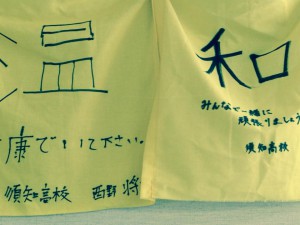 温
康でいて下さい。
須知高校 西野 将
和
みんなで一緒に
頑張りましょう
須知高校